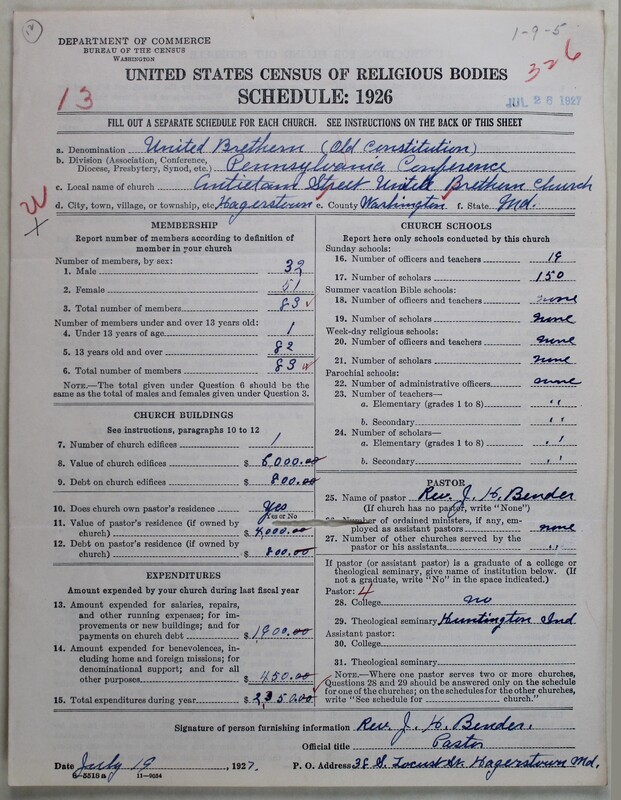 12
1-9-5
DEPARTMENT OF COMMERCE
BUREAU OF THE CENSUS
WASHINGTON
326
UNITED STATES CENSUS OF RELIGIOUS BODIES
13
SCHEDULE: 1926
JUL 28 1927
FILL OUT A SEPARATE SCHEDULE FOR EACH CHURCH. SEE INSTRUCTIONS ON THE BACK OF THIS SHEET
a. Denomination United Brethern (Old Constitution)
b. Division (Association, Conference, Diocese, Presbytery, Synod, etc.) Pennsylvania Conference
c. Local name of church Antietam Street United Brethern Church
d. City, town, village, or township, etc. Hagerstown e. County Washington f. State Md.
MEMBERSHIP
Report number of members according to definition of member in your church
Number of members, by sex:
1. Male 32
2. Female 51
3. Total number of members 83
Number of members under and over 13 years old:
4. Under 13 years of age 1
5. 13 years old and over 82
6. Total number of members 83
NOTE.—The total given under Question 6 should be the same as the total of males and females given under Question 3.
CHURCH BUILDINGS
See instructions, paragraphs 10 to 12
7. Number of church edifices 1
8. Value of church edifices $ 6,000.00
9. Debt on church edifices $ 800.00
10. Does church own pastor's residence? Yes
Yes or No
11. Value of pastor's residence (if owned by church) $ 4,000.00
12. Debt on pastor's residence (if owned by church) $ 800.00
EXPENDITURES
Amount expended by your church during last fiscal year
13. Amount expended for salaries, repairs, and other running expenses; for improvements or new buildings; and for payments on church debt $ 1900.00
14. Amount expended for benevolences, including home and foreign missions; for denominational support; and for all other purposes $ 450.00
15. Total expenditures during year $ 2,350.00
CHURCH SCHOOLS
Report here only schools conducted by this church
Sunday schools:
16. Number of officers and teachers 19
17. Number of scholars 150
Summer vacation Bible schools:
18. Number of officers and teachers none
19. Number of scholars none
Week-day religious schools:
20. Number of officers and teachers none
21. Number of scholars none
Parochial schools:
22. Number of administrative officers none
23. Number of teachers—
a. Elementary (grades 1 to 8) " "
b. Secondary " "
24. Number of scholars—
a. Elementary (grades 1 to 8) " "
b. Secondary " "
PASTOR
25. Name of pastor Rev. J. H. Bender
(If church has no pastor, write "None")
26. Number of ordained ministers, if any, employed as assistant pastors none
27. Number of other churches served by the pastor or his assistants " "
If pastor (or assistant pastor) is a graduate of a college or theological seminary, give name of institution below. (If not a graduate, write "No" in the space indicated.)
Pastor: 4
28. College no
29. Theological seminary Huntington Ind
Assistant pastor:
30. College
31. Theological seminary
NOTE.—Where one pastor serves two or more churches, Questions 28 and 29 should be answered only on the schedule for one of the churches; on the schedules for the other churches, write "See schedule for ........ church."
Signature of person furnishing information Rev. J. H. Bender.
Official title Pastor
Date July 19, 1927. P. O. Address 38 S. Locust St. Hagerstown Md.
8-5518a 11-9034